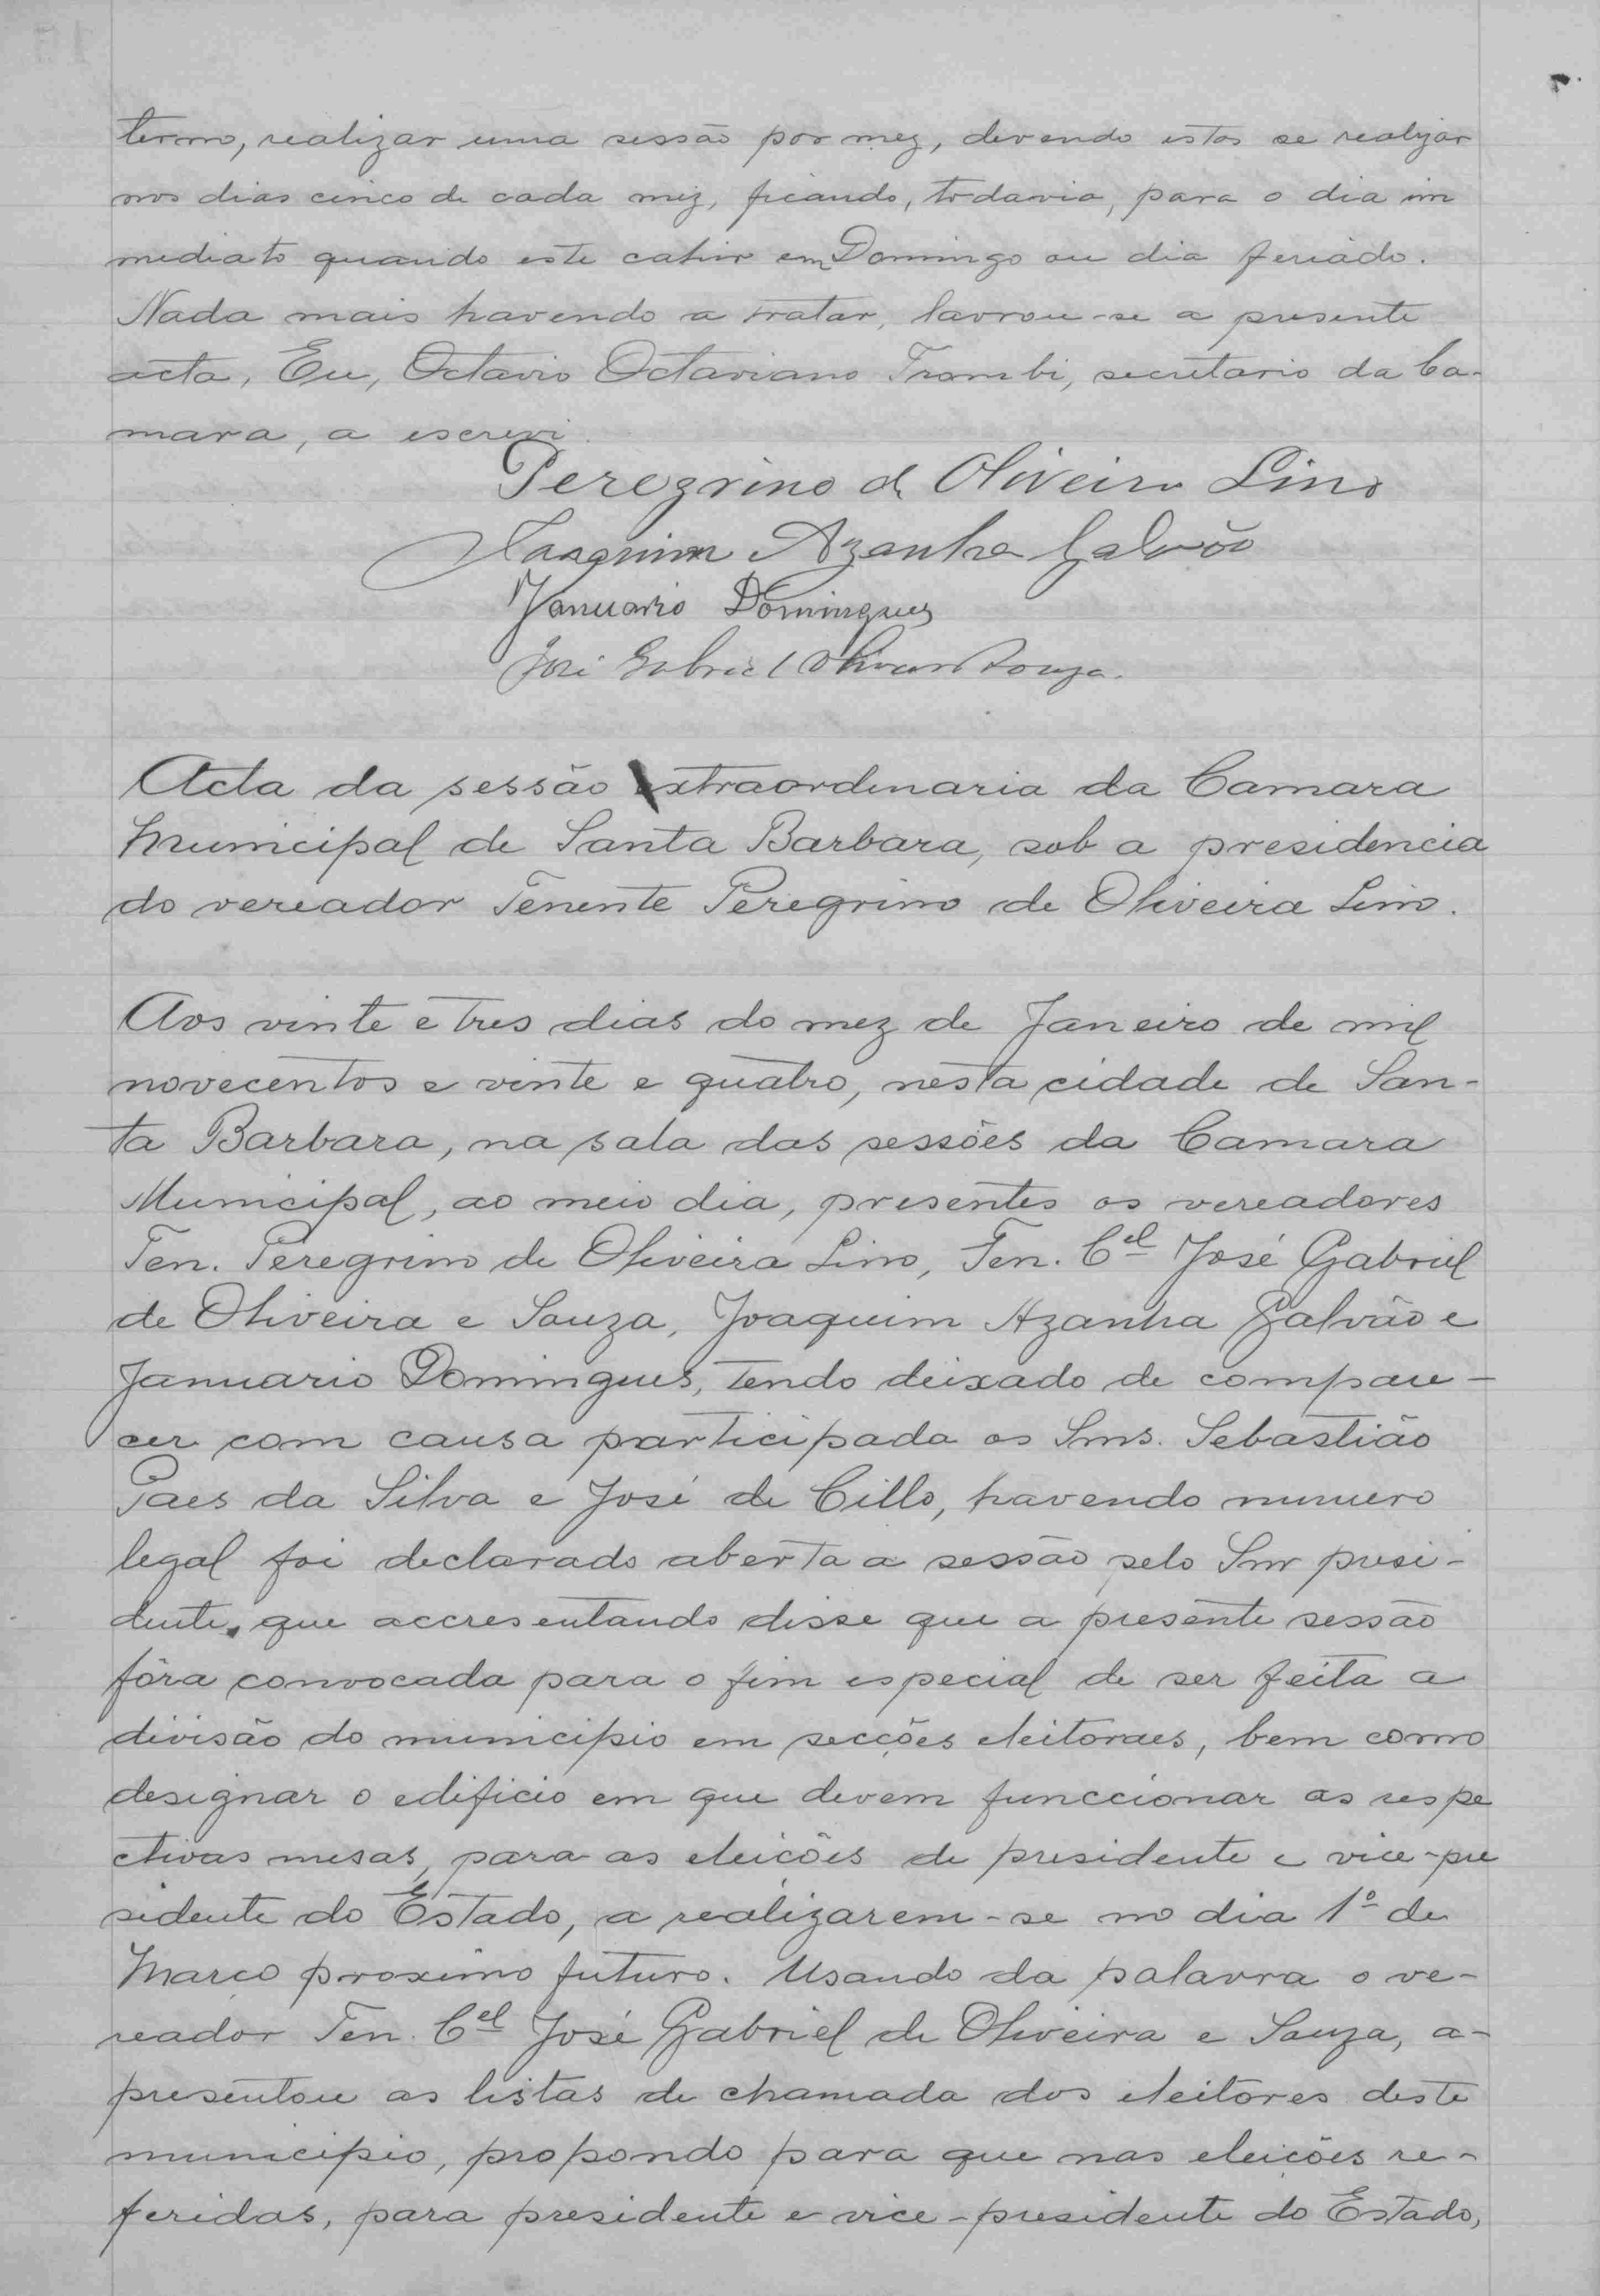 termo, realizar uma sessão por mez, devendo estas se realizar
nos dias cinco de cada mez, ficando, todavia, para o dia im
mediato quando este cahir em Domingo ou dia feriado.
Nada mais havendo a tratar, lavrou-se a presente
acta, Eu, Octavio Octaviano Trombi, secretario da Ca-
mara, a escrevi.
Peregrino de Oliveira Lino
Joaquim Azanha Galvão
Januario Domingues
José Gabriel Oliveira Souza.
Acta da sessão extraordinaria da Camara
Municipal de Santa Barbara, sob a presidencia
do vereador Tenente Peregrino de Oliveira Lino.
Aos vinte e tres dias do mez de Janeiro de mil
novecentos e vinte e quatro, nesta cidade de San-
ta Barbara, na sala das sessões da Camara
Municipal, ao meio dia, presentes os vereadores
Ten. Peregrino de Oliveira Lino, Ten. Cel José Gabriel
de Oliveira e Souza, Joaquim Azanha Galvão e
Januario Domingues, tendo deixado de compare-
cer com causa participada os Snrs. Sebastião
Paes da Silva e José de Cillo, havendo numero
legal foi declarado aberta a sessão pelo Snr presi-
dente, que accresentando disse que a presente sessão
fôra convocada para o fim especial de ser feita a
divisão do municipio em secções eleitoraes, bem como
designar o edificio em que devem funccionar as respe
ctivas mesas, para as eleições de presidente e vice-pre
sidente do Estado, a realizarem-se no dia 1º de
Março proximo futuro. Usando da palavra o ve-
reador Ten. Cel José Gabriel de Oliveira e Souza, a-
presentou as listas de chamada dos eleitores deste
municipio, propondo para que nas eleições re-
feridas, para presidente e vice-presidente do Estado,